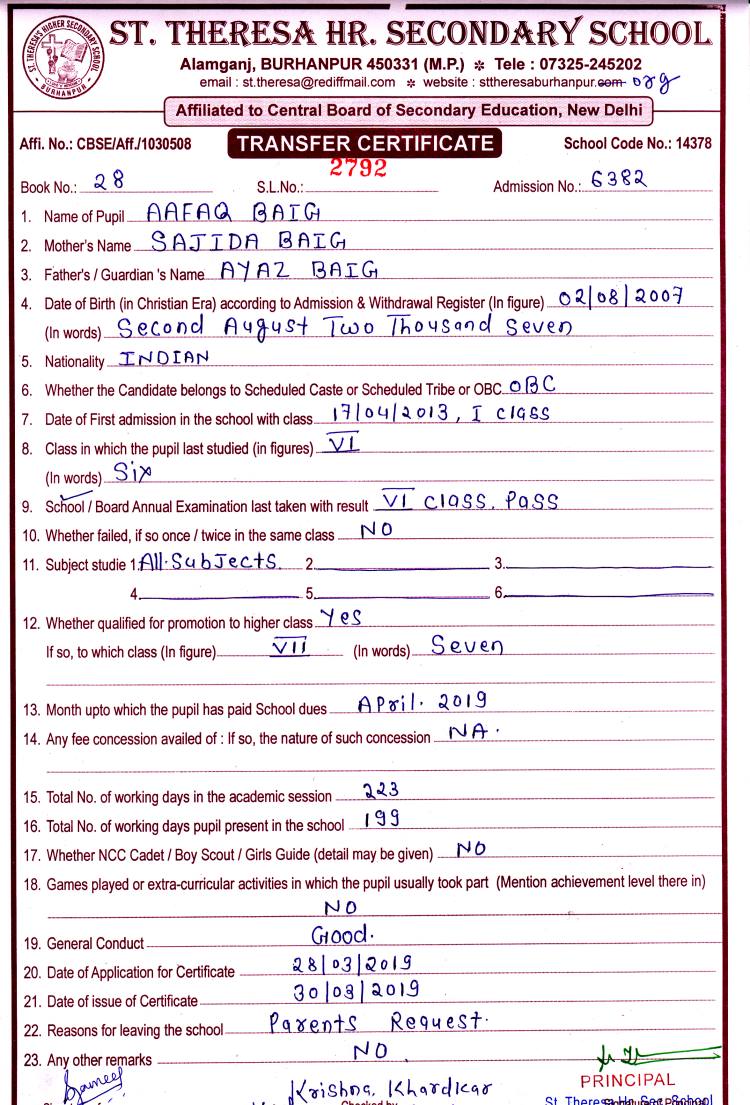 ST. THERESA HR. SECONDARY SCHOOL
ST. THERESA'S HIGHER SECONDARY SCHOOL BURHANPUR
Alamganj, BURHANPUR 450331 (M.P.) ❉ Tele : 07325-245202
email : st.theresa@rediffmail.com ❉ website : sttheresaburhanpur.com org
Affiliated to Central Board of Secondary Education, New Delhi
Affi. No.: CBSE/Aff./1030508 TRANSFER CERTIFICATE School Code No.: 14378
Book No.: 28 S.L.No.: 2792 Admission No.: 6382
1. Name of Pupil AAFAQ BAIG
2. Mother's Name SAJIDA BAIG
3. Father's / Guardian 's Name AYAZ BAIG
4. Date of Birth (in Christian Era) according to Admission & Withdrawal Register (In figure) 02/08/2007
(In words) Second August Two Thousand Seven
5. Nationality INDIAN
6. Whether the Candidate belongs to Scheduled Caste or Scheduled Tribe or OBC OBC
7. Date of First admission in the school with class 17/04/2013, I class
8. Class in which the pupil last studied (in figures) VI
(In words) Six
9. School / Board Annual Examination last taken with result VI class. Pass
10. Whether failed, if so once / twice in the same class NO
11. Subject studie 1. All Subjects. 2. 3.
4. 5. 6.
12. Whether qualified for promotion to higher class Yes
If so, to which class (In figure) VII (In words) Seven
13. Month upto which the pupil has paid School dues April. 2019
14. Any fee concession availed of : If so, the nature of such concession NA.
15. Total No. of working days in the academic session 223
16. Total No. of working days pupil present in the school 199
17. Whether NCC Cadet / Boy Scout / Girls Guide (detail may be given) NO
18. Games played or extra-curricular activities in which the pupil usually took part (Mention achievement level there in)
NO
19. General Conduct Good.
20. Date of Application for Certificate 28/03/2019
21. Date of issue of Certificate 30/03/2019
22. Reasons for leaving the school Parents Request.
23. Any other remarks NO.
PRINCIPAL
Krishna Khardikar
Checked by St. Theresa Hr. Sec. School